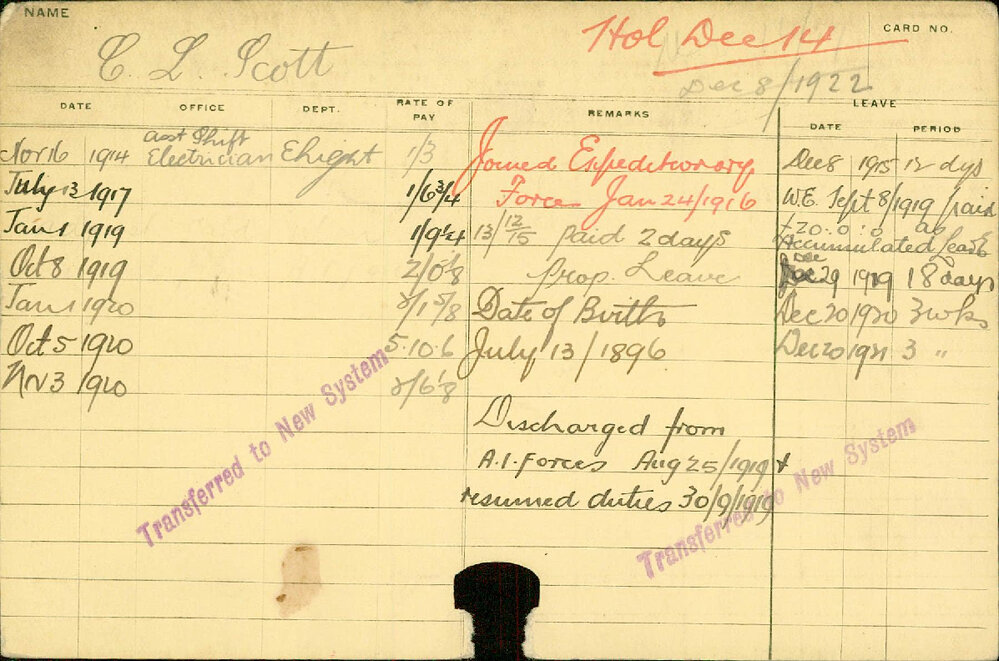 NAME
CARD NO.
C. L. Scott
Hol Dec 14
Dec 8/1922
DATE OFFICE DEPT. RATE OF PAY REMARKS LEAVE
DATE PERIOD
Nov 16 1914 asst Shift Electrician Ehight 1/3
July 13 1917 1/6 3/4
Jan 1 1919 1/9 1/4
Oct 8 1919 2/0 1/8
Jan 1 1920 2/1 5/8
Oct 5 1920 5.10.6
Nov 3 1920 2/6 1/8
Joined Expeditionary
Force Jan 24/1916
13/12/15 paid 2 days
Prop. Leave
Date of Birth
July 13/1896
Discharged from
A.I. Forces Aug 25/1919 +
resumed duties 30/9/1919
Dec 8 1915 12 dys
W.E. Sept 8/1919 paid
£20:0:0 as
Accumulated Leave
Dec
Dec 29 1919 18 days
Dec 20 1920 3 wks
Dec 20 1921 3 "
Transferred to New System
Transferred to New System